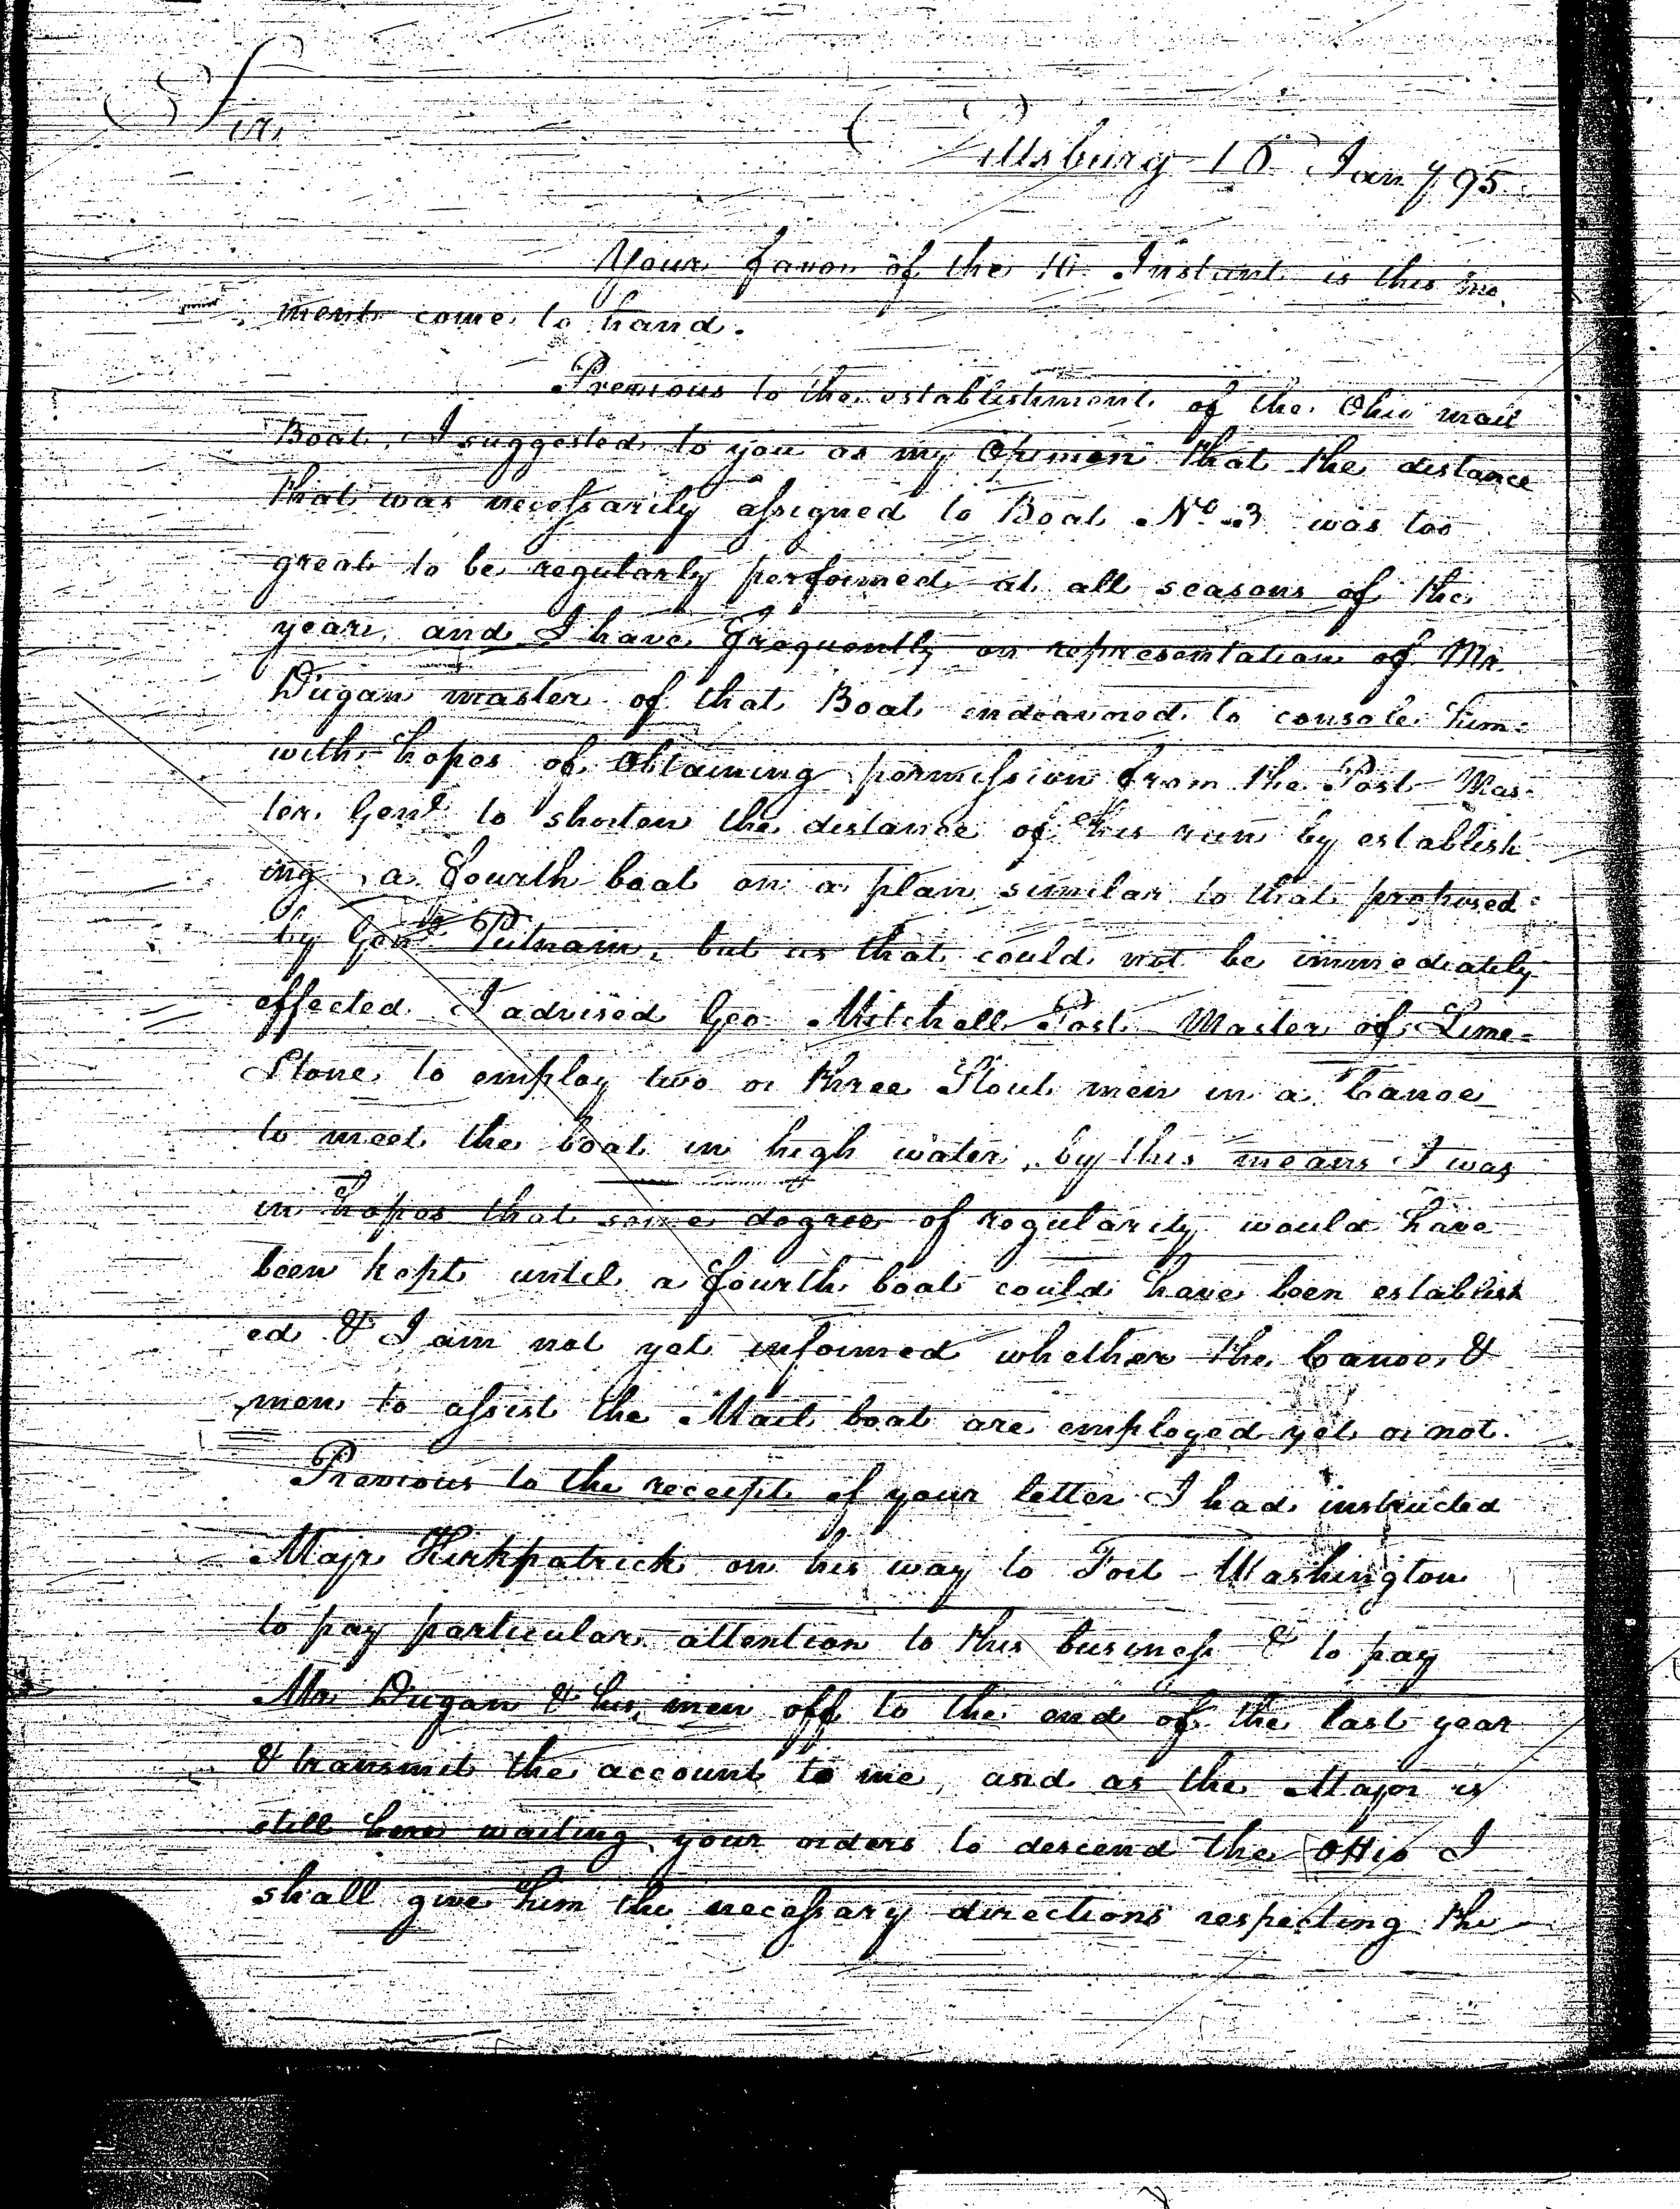 Sir
Pittsburg 16 Jan 795
Your favor of the 10 Instant is this mo
ment come to hand.
Previous to the establishment of the Ohio mail
Boat, I suggested to you as my Opinion that the distance
that was necessarily assigned to Boat No 3 was too
great to be regularly performed at all seasons of the
year, and I have frequently on representation of Mr
Dugan master of that Boat endeavored to console him
with hopes of obtaining permission from the Post Mas-
ter Genl to shorten the distance of his run by establish
ing a fourth boat on a plan similar to that proposed
by Genl Putnam, but as that could not be immediately
effected I advised Geo Mitchell Post Master of Lime=
Stone to employ two or three Stout men in a Canoe
to meet the boat in high water, by this means I was
in hopes that some degree of regularity would have
been kept until a fourth boat could have been establish
ed & I am not yet informed whether the Canoe &
men to assist the Mail boat are employed yet or not.
Previous to the receipt of your letter I had instructed
Majr Kirkpatrick on his way to Fort Washington
to pay particular attention to this business & to pay
Mr Dugan & his men off to the end of the last year
& transmit the account to me, and as the Major is
still here waiting your orders to descend the Ohio I
shall give him the necessary directions respecting the